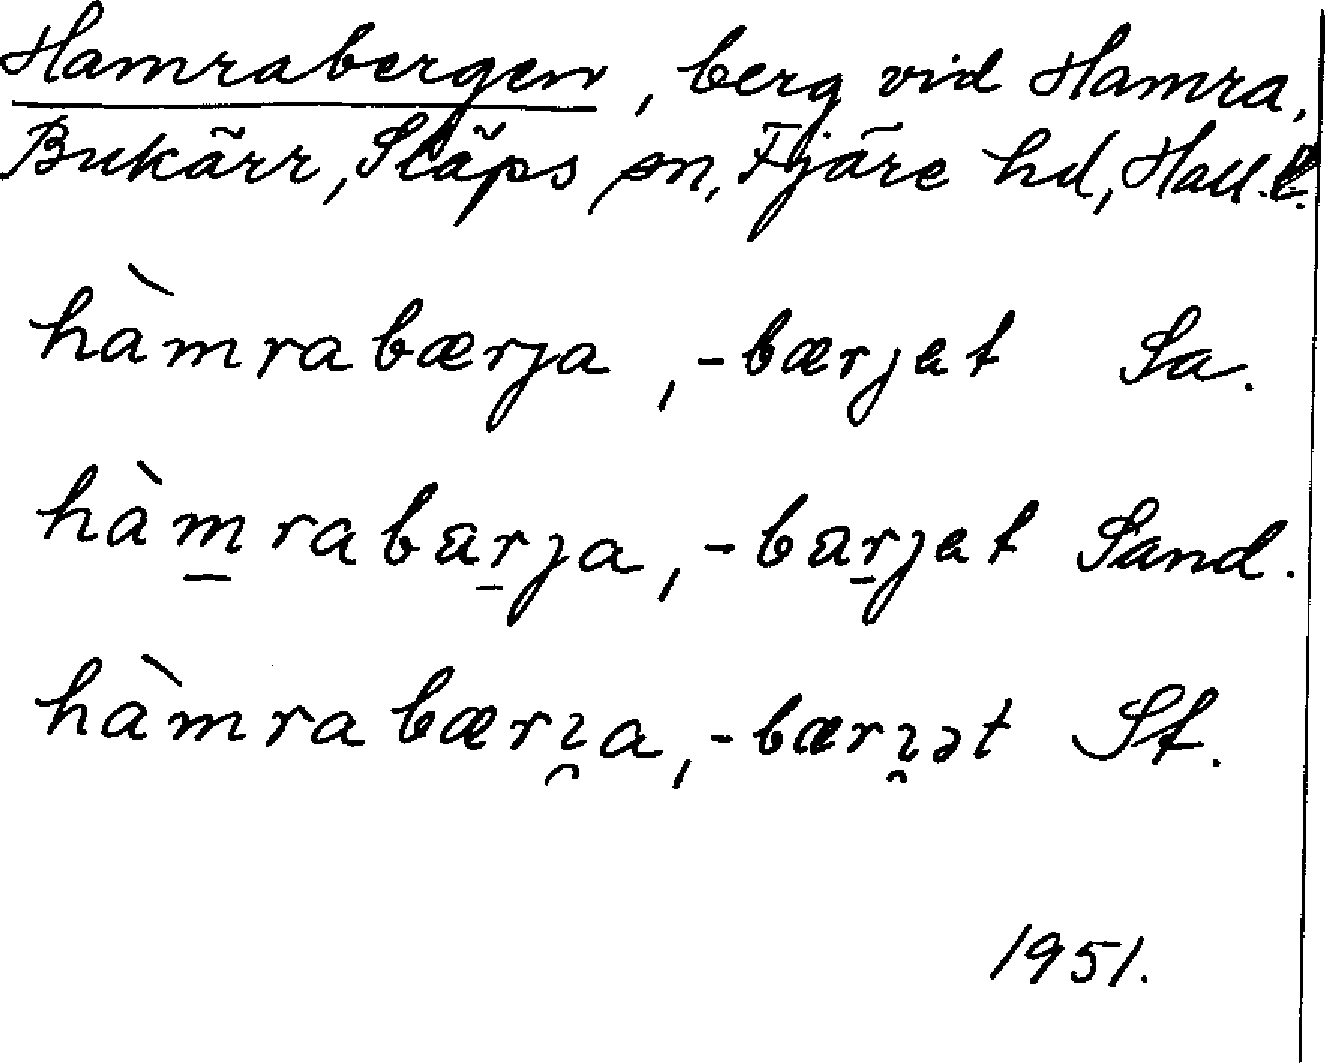 Hamrabergen, berg vid Hamra,
Bukärr, Släps sn, Fjäre hd, Hall. l.
hàmrabærja, -bærjet Sa.
hàm̲rabar̲ja, -bar̲jet Sand.
hàmrabærɀ̯a, -bærɀ̯ət St.
1951.